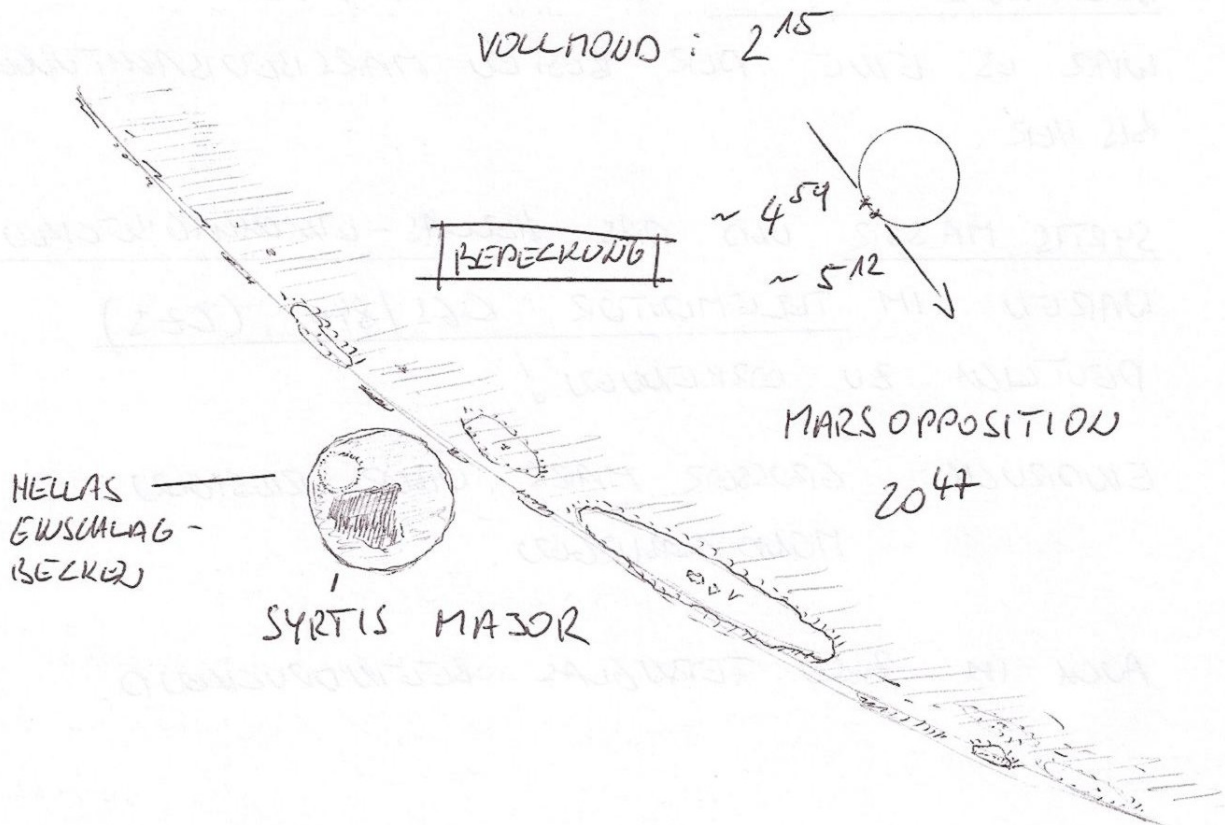 VOLLMOND : 2 15
~ 4 54
BEDECKUNG
~ 5 12
MARSOPPOSITION
20 47
HELLAS
EINSCHLAG-
BECKEN
SYRTIS MAJOR